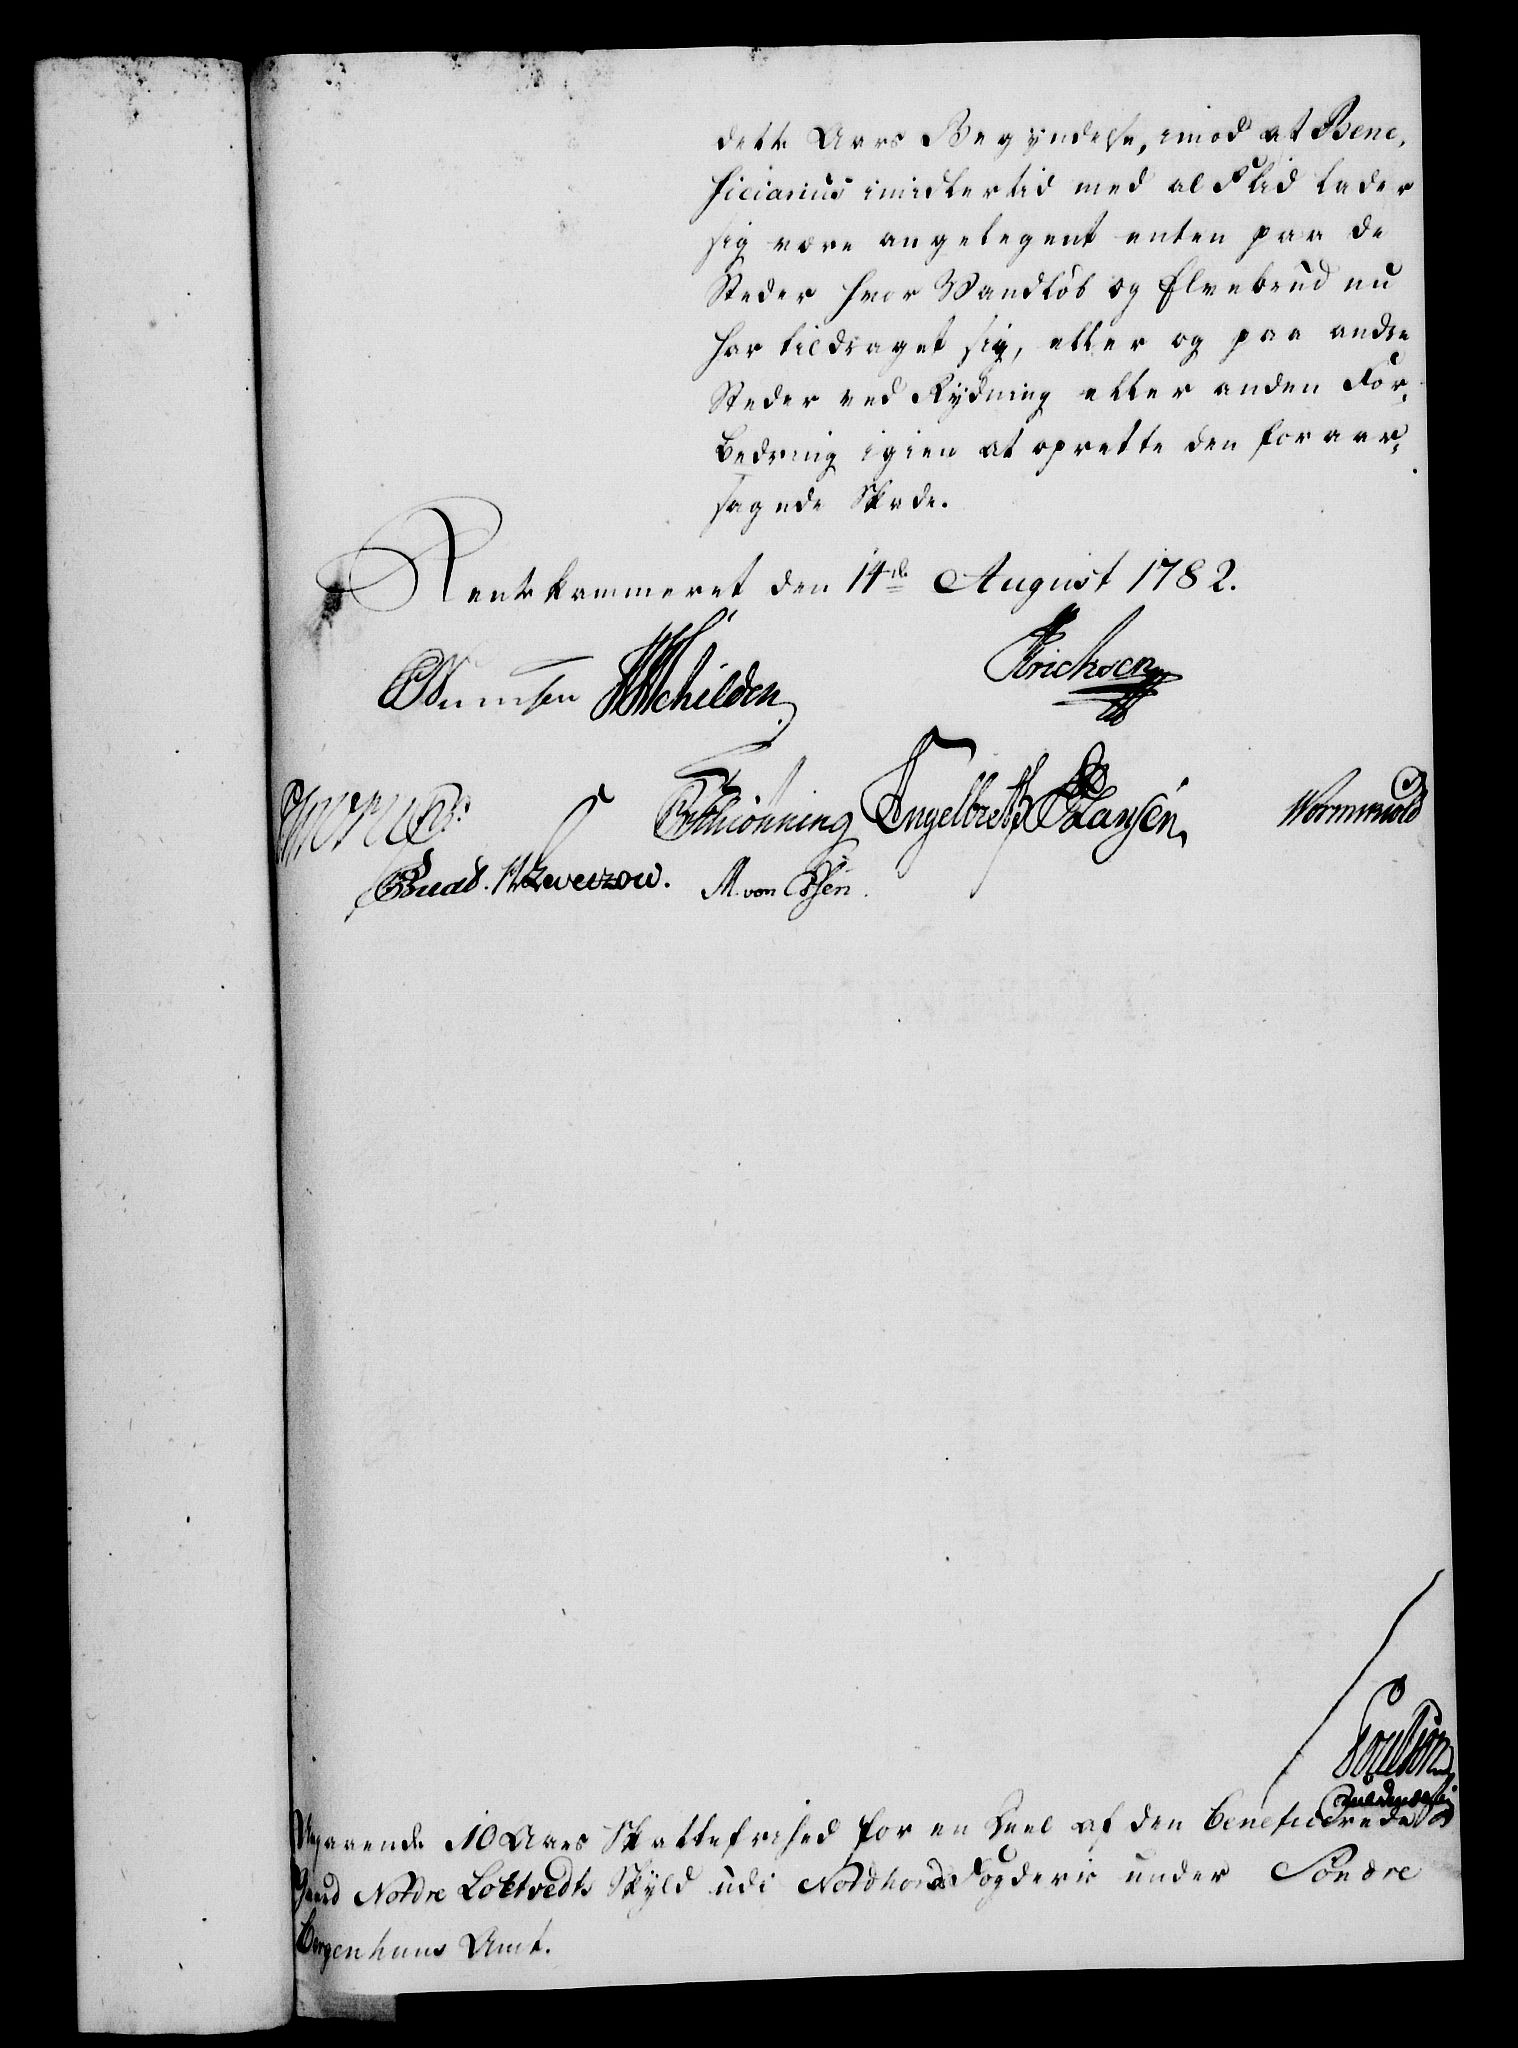 dette Aars Begyndelse, imod at Bene,
ficiarius imidlertid med al Flid lader
sig være angelegent enten paa de
Steder hvor Vandløb og Elvebrud nu
har tildraget sig, eller og paa andre
Steder ved Rydning eller anden For,
bedring igien at oprette den foraar,
sagede Skade.
Rentekammeret den 14de August 1782.
Schilden Erichsen
Schiønning Engelbreth Hansen Wormskiold
Lewezow. M. von Essen.
Angaaende 10 Aars Skattefrihed for en Deel af den beneficerede
Gaard Nordre Loktvedts Skyld udi Nordhords Fogderie under Søndre
Bergenhuus Amt.